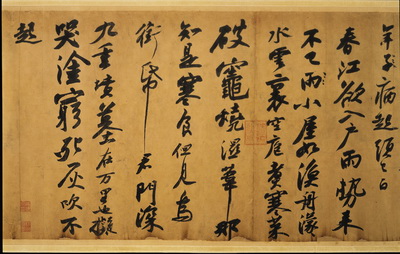 年子病起頭已白
春江欲入戶雨勢來
不已雨小屋如漁舟濛〻
水雲裏空庖煮寒菜
破竈燒濕葦那
知是寒食但見烏
銜帋君門深
九重墳墓在万里也擬
哭塗窮死灰吹不
起